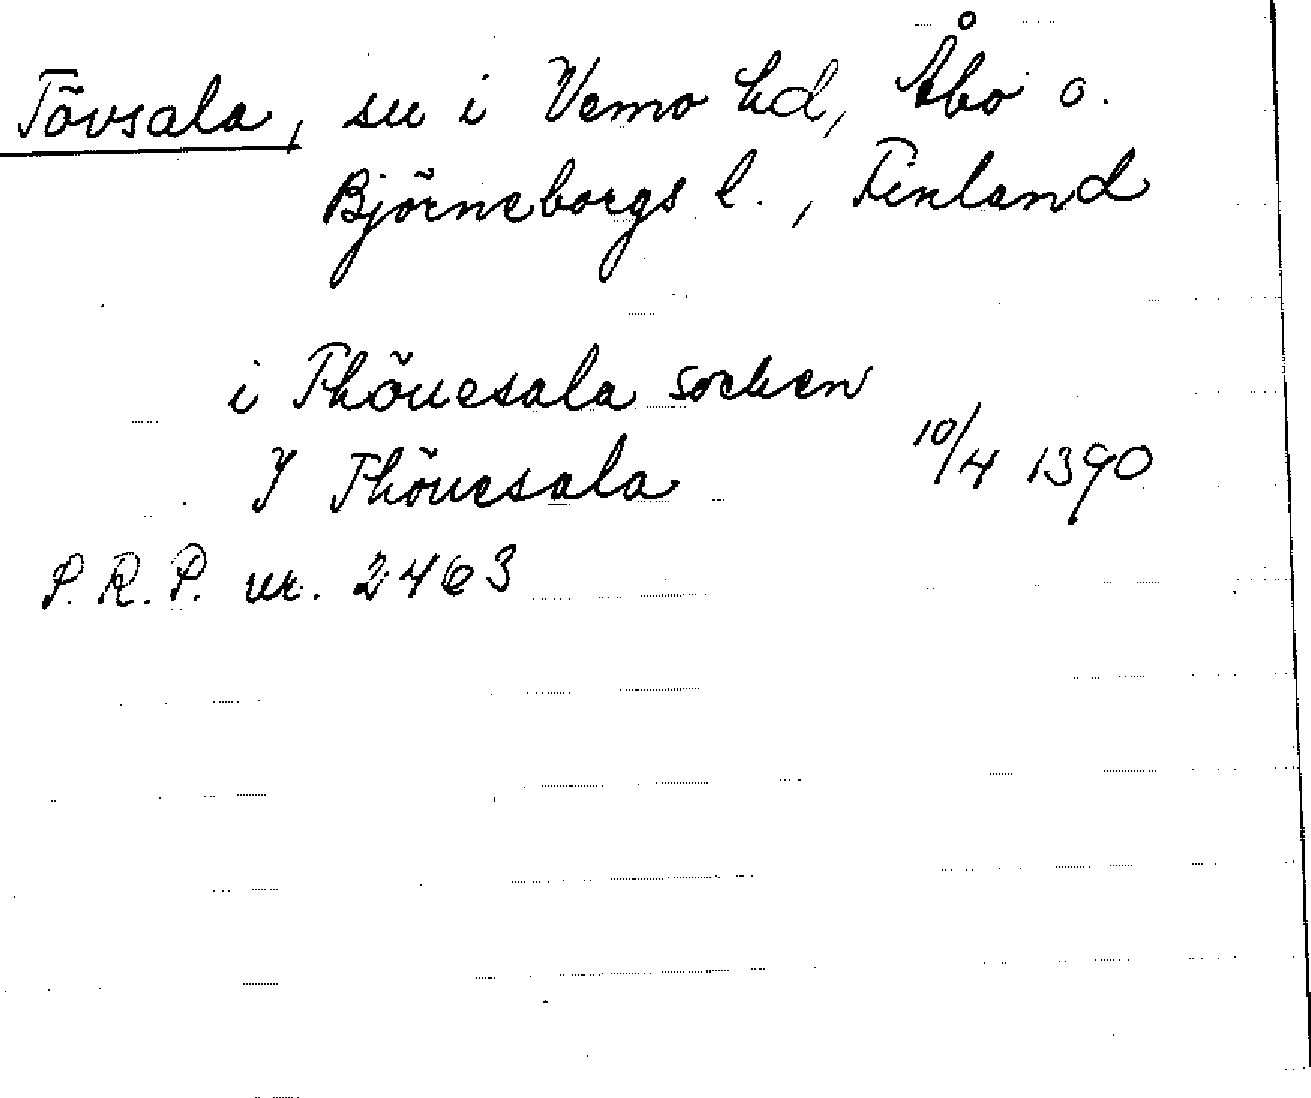 Tövsala, sn i Vemo hd, Åbo o.
Björneborgs l., Finland
i Thöuesala socken
J Thöuesala 10/4 1390
P.R.P. nr. 2463